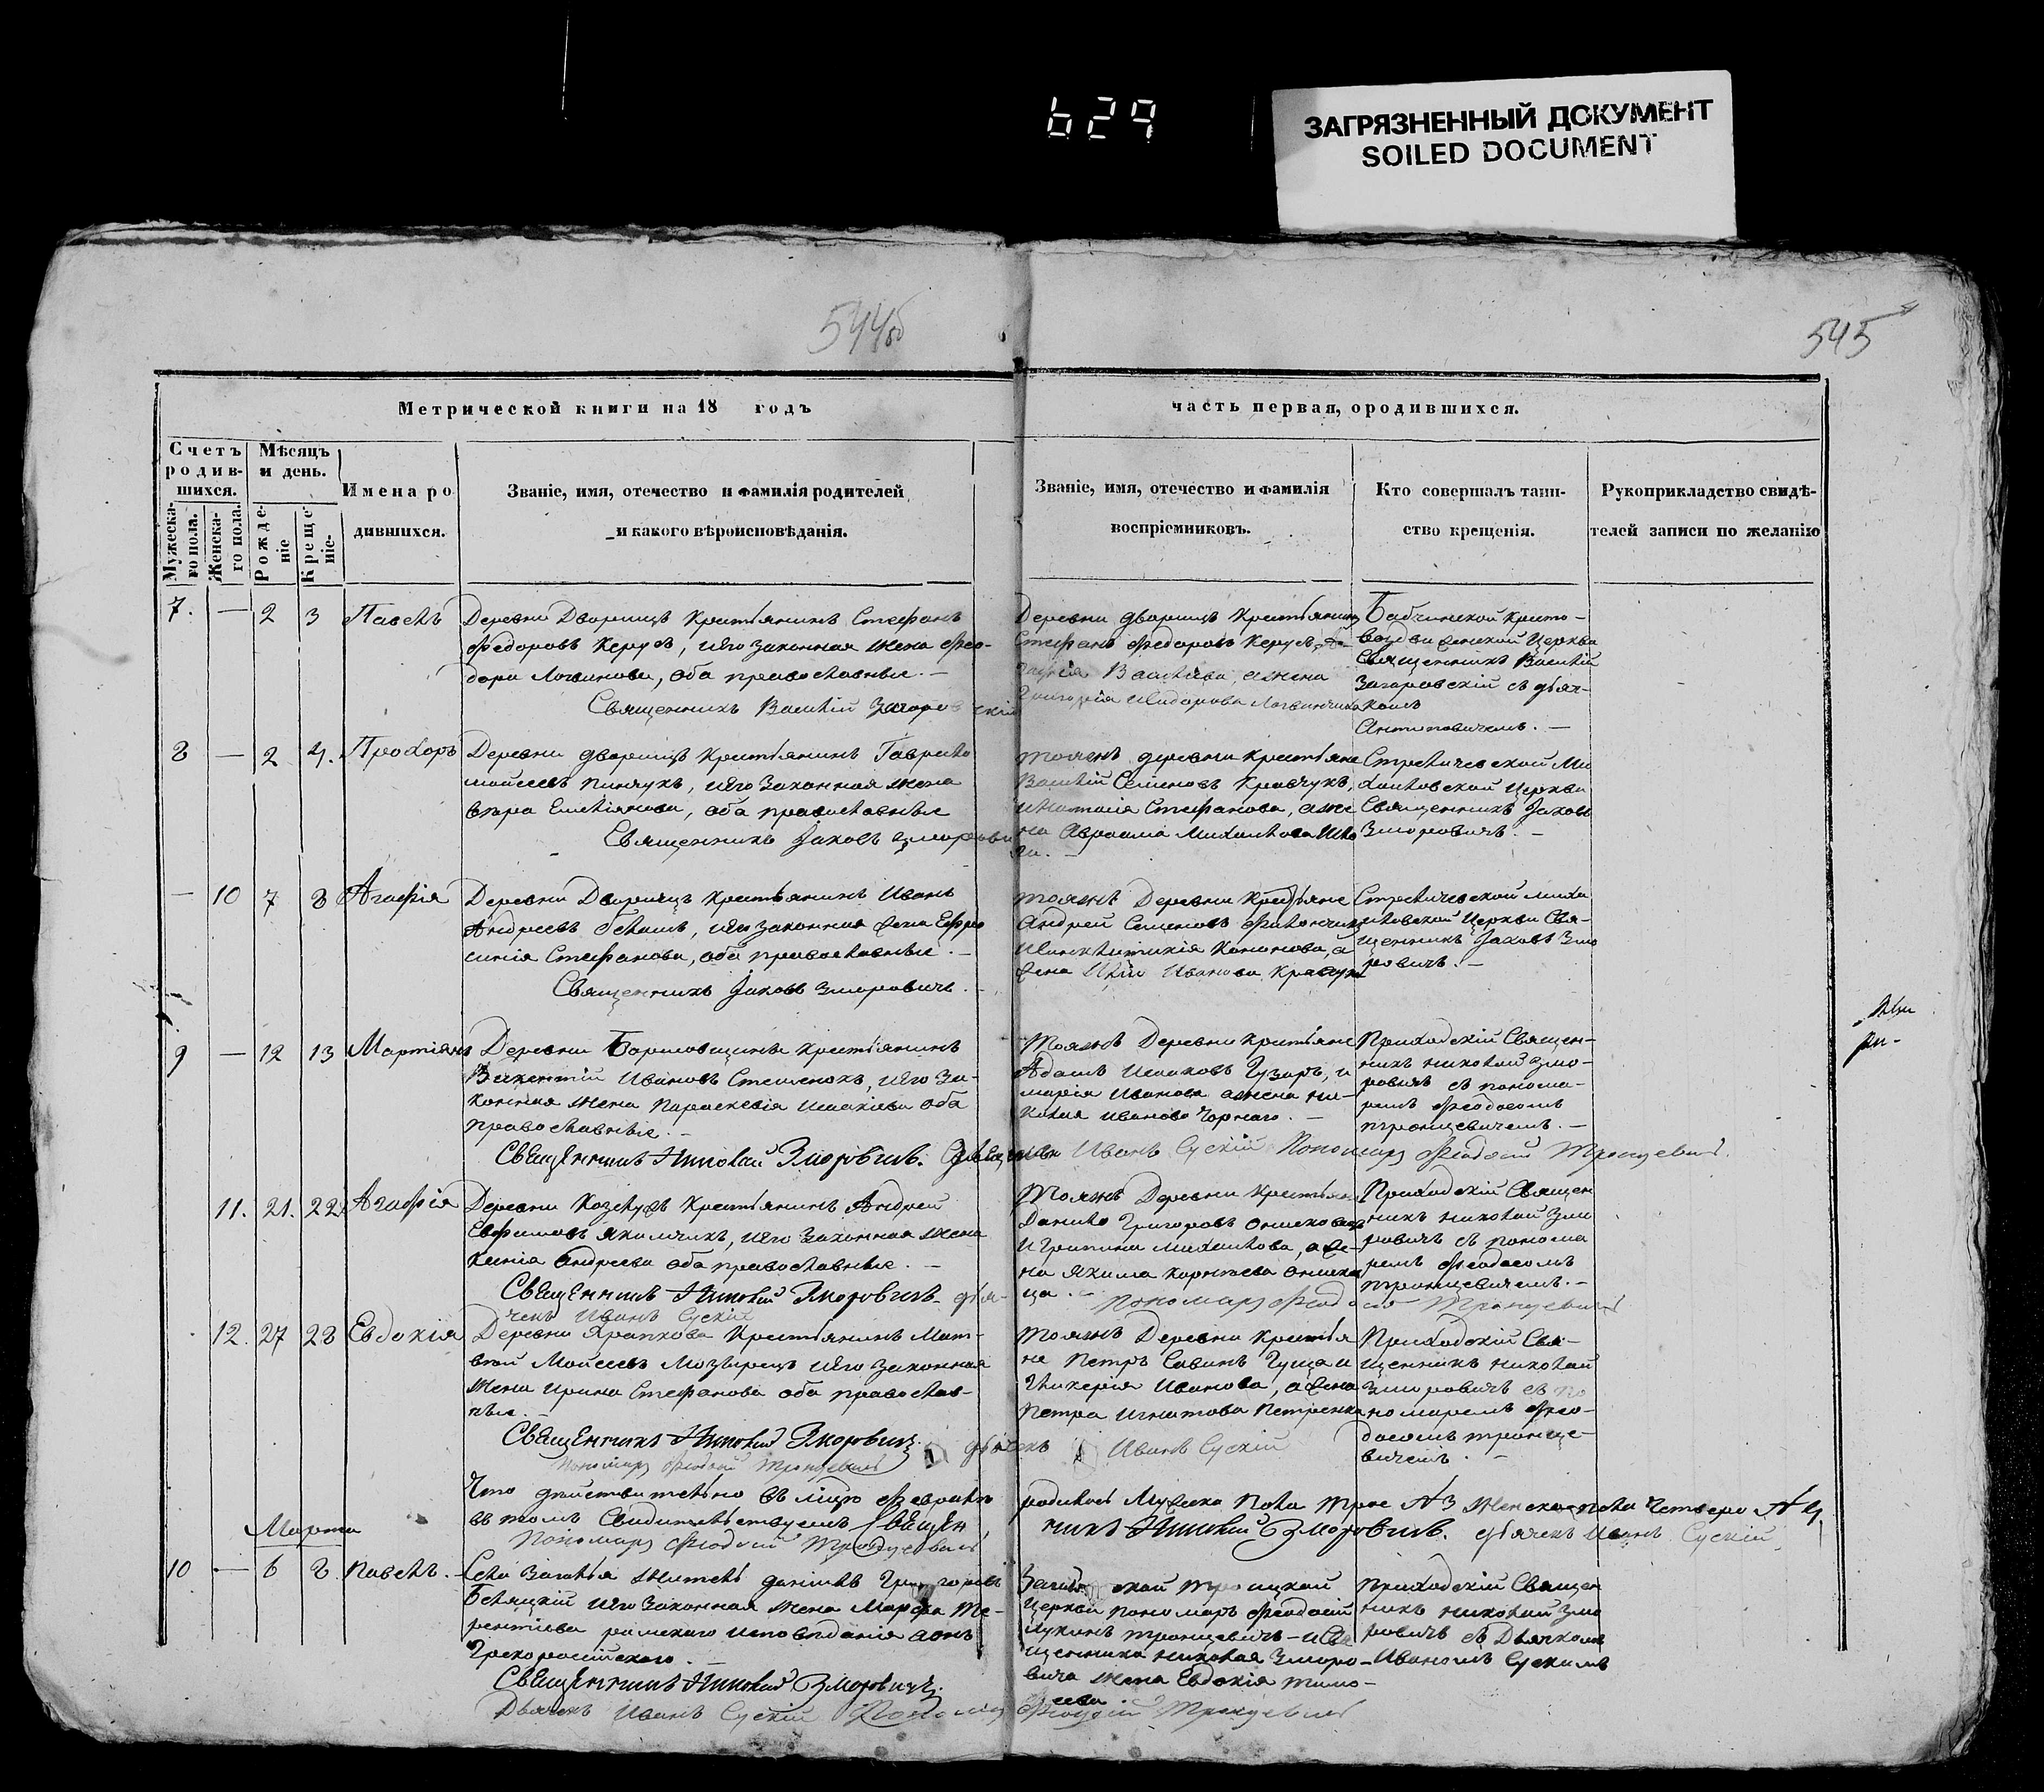 629
ЗАГРЯЗНЕННЫЙ ДОКУМЕНТ
SOILED DOCUMENT
544об
545
Метрической книги на 18 годъ
часть первая, ородившихся.
Счетъ родив-шихся.
Мѣсяцъ и день.
Мужеска-го пола.
Женска-го пола.
Рожде-ніе
Креще-ніе.
Имена ро
дившихся.
Званіе, имя, отечество и фамилія родителей
и какого вѣроисповѣданія.
Званіе, имя, отечество и фамилія
воспріемниковъ.
Кто совершалъ таин-
ство крещенія.
Рукоприкладство свидѣ-
телей записи по желанію
7. — 2 3 Павелъ
Деревни Дворищъ Крестьянинъ Стефанъ
Федоровъ Керусъ, иѣго законная жена Фео-
дора Логвинова, оба православные. —
Священникъ Василій Загоровскій
Деревни дворищъ Крестьянинъ
Стефанъ Федоровъ Керусъ
Васильева, а жена
Бабчинской Кресто-
воздвиженской Церкви
Священникъ Василій
Загоровскій съ дьяч-
комъ
Антоновичемъ. —
8 — 2 4. Прохоръ
Деревни дворищъ Крестьянинъ Гаврило
Мойсеевъ Пинчукъ, иѣго Законная жена
Вѣра Емельянова, оба православные
Священникъ Іаковъ Зморович
тояжъ деревни Крестьяне
Василій Семеновъ Кравчукъ,
иНаталія Стефанова, а же
на Авраама Михайлова
Стреличевской Ми
хайловской Церкви
Священникъ Іаковъ
Зморовичъ. —
— 10 7 8 Агафія
Деревни Дворищъ Крестьянинъ Иванъ
Андреевъ, иѣго законная жена Ефро
синія Стефанова, оба православные. —
Священникъ Іаковъ Зморовичъ. —
тояжъ Деревни Крестьяне
Андрей Семеновъ
Кононова, а
жена Ивана
Стреличевской Миха
йловской Церкви Свя-
щенникъ Іаковъ Змо
ровичъ. —
9 — 12 13 Мартіянъ
Деревни Борисовщины Крестьянинъ
Викентій Ивановъ Стешенокъ, иѣго За-
конная жена Параскевія Исакіева оба
православные. —
Священникъ Николай Зморовичъ. Дьячекъ Иванъ Сускій Пономарь Феодосій Тронцевичъ.
Тояжъ Деревни Крестьяне
Адамъ Исаковъ Гузаръ, и
марія Иванова а жена Ни-
колая Иванова Чорнаго. —
Приходскій Священ-
никъ Николай Змо-
ровичъ съ понома-
ремъ Феодосомъ
тронцевичемъ. —
11. 21. 22 Агафія
Деревни Крестьянинъ Андрей
Ефимовъ Якимчикъ, иѣго Законная жена
Ксенія Андреева оба православные. —
Священникъ Николай Зморовичъ дья-
чекъ Иванъ Сускій
Тояжъ Деревни Крестьяне
Данило Григоровъ
и Грипина Михайлова, а же-
на Якима Корнѣева
Пономарь Феодосій Тронцевичъ
Приходскій Священ
никъ Николай Змо
ровичъ съ понома
ремъ Феодосомъ
тронцевичемъ. —
12. 27 28 Евдокія
Деревни Храпкова Крестьянинъ Мат-
вѣй Мойсеевъ Мозырецъ иѣго законная
Жена Ирина Стефанова оба православ-
ные.
Священникъ Николай Зморовичъ. дьячекъ Иванъ Сускій
Пономарь Феодосій Тронцевичъ
Тояжъ Деревни Крестья
не Петръ Савинъ Гуща и
Гликерія Иванова, а жена
Петра Игнатова Петренка
Приходскій Свя-
щенникъ Николай
Зморовичъ съ по
номаремъ Фео-
досомъ тронце-
вичемъ. —
Что дѣйствительно въ мѣцѣ Февралѣ родилось Мужеска Пола Трое №3 Женска пола Четверо №4
въ томъ Свидительствуемъ Священникъ Николай Зморовичъ. дьячекъ Иванъ Сускій.
Пономарь Феодосій Тронцевичъ
Марта
10 — 6 8. Павелъ. —
Села Загалья житель Григоровъ
Бѣляцкій иѣго Законная жена Марфа Те-
рентіева римскаго исповѣданія а онъ
Грекороссійскаго. —
Священникъ Николай Зморовичъ.
Дьячекъ Иванъ Сускій Пономарь Феодосій Тронцевичъ
Троицкой
Церкви пономарь Феодосій
Лукинъ тронцевичъ — и Свя
щенника Николая Зморо-
вича жена Евдокія Тимо-
феева.
Приходскій Священ
никъ Николай Змо
ровичъ съ Дьячкомъ
Иваномъ Сускимъ